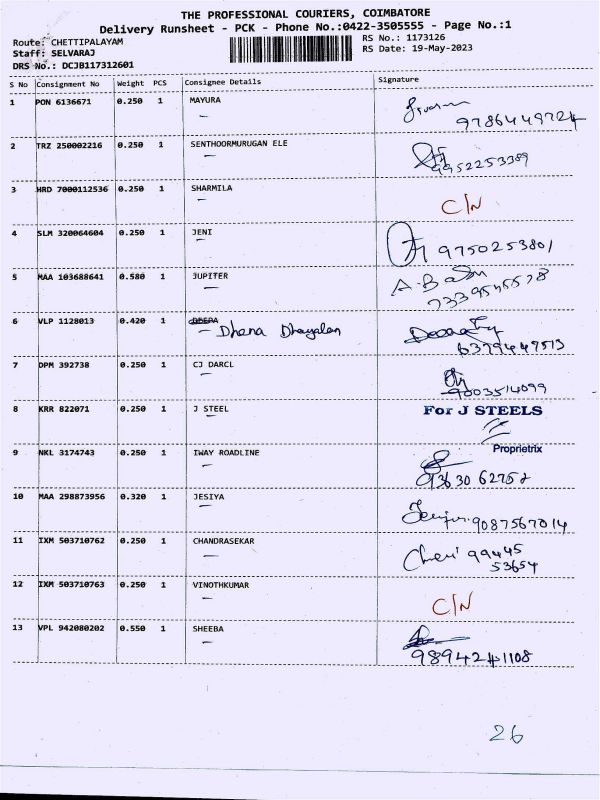 THE PROFESSIONAL COURIERS, COIMBATORE
Delivery Runsheet - PCK - Phone No.:0422-3505555 - Page No.:1
Route: CHETTIPALAYAM
RS No.: 1173126
Staff: SELVARAJ
RS Date: 19-May-2023
DRS No.: DCJB117312601
S No Consignment No Weight PCS Consignee Details Signature
1 PON 6136671 0.250 1 MAYURA
9786449724
2 TRZ 250002216 0.250 1 SENTHOORMURUGAN ELE
9952253389
3 HRD 7000112536 0.250 1 SHARMILA
C/N
4 SLM 320064604 0.250 1 JENI
9750253801
5 MAA 103688641 0.580 1 JUPITER
A. Babu
7339545578
6 VLP 1128013 0.420 1 DEEPA
Dhana Dhayalan
6379449513
7 DPM 392738 0.250 1 CJ DARCL
9003514099
8 KRR 822071 0.250 1 J STEEL For J STEELS
Proprietrix
9 NKL 3174743 0.250 1 IWAY ROADLINE
93630 62752
10 MAA 298873956 0.320 1 JESIYA
9087567014
11 IXM 503710762 0.250 1 CHANDRASEKAR
99445
53654
12 IXM 503710763 0.250 1 VINOTHKUMAR
C/N
13 VPL 942080202 0.550 1 SHEEBA
9894241108
26